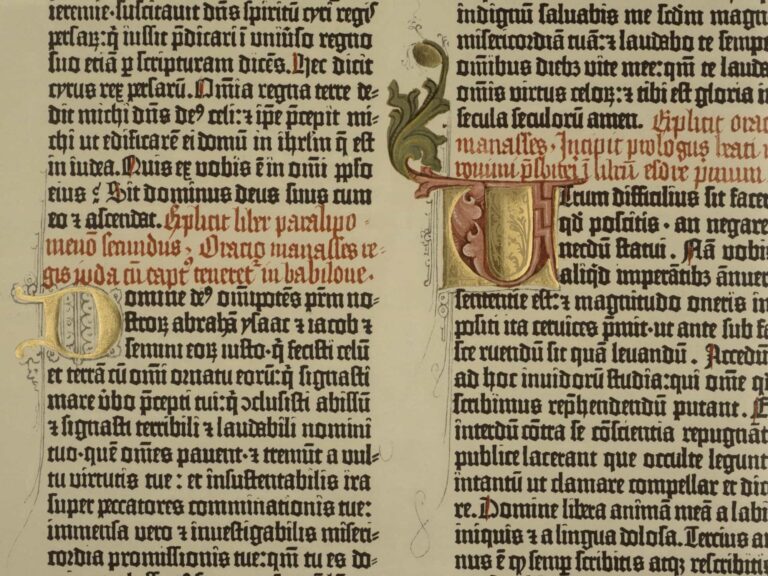 ieremie·suscitauit dñs spiritũ cyri regis
persarũ:q̃ iussit p̃dicari ĩ uniũso regno
suo etiã p̱ scripturam dicẽs. Hec dicit
cyrus rex persarũ. Om̃ia regna terre de⸗
dit michi dñs de⁹ celi:⁊ ip̃e p̃cepit mi⸗
chi ut edificarẽ ei domũ in ihrl̃m q̃ est
in iudea. Quis ex vobis ẽ in om̃i pp̃lo
eius ? Sit dominus deus suus cum
eo ⁊ ascendat. Explicit liber paralipo⸗
menõ secundus· Oracio manasses re⸗
gis iuda cũ capt⁹ teneret̃ in babilone·
Domine de⁹ om̃ipotẽs pr̃m no⸗
stroꝝ abrahã ysaac ⁊ iacob ⁊
semini eoꝝ iusto·q̃ fecisti celũ
et terrã cũ om̃i ornatu eorũ:q̃ signasti
mare ũbo p̃cepti tui:q̃ ↄclusisti abissũ
⁊ signasti terribili ⁊ laudabili nomini
tuo·quẽ om̃es pauent·⁊ tremũt a vul⸗
tu virtutis tue: et insustentabilis ira
super peccatores comminationis tue:
immensa vero ⁊ inuestigabilis miseri⸗
cordia promissionis tue:qm̃ tu es do⸗
indignũ saluabis me scd̃m magnã
misericordiã tuã:⁊ laudabo te semper
omĩbus diebꝫ vite mee:qm̃ te laudat
om̃is virtus celoꝝ:⁊ tibi est gloria in
secula seculorũ amen. Explicit oracio
manasses· Incipit prologus beati
p̃sbiteri ĩ librũ esdre primum
Utrum difficilius sit facere
qd̃ poscitis·an negare
necdũ statui. Nã vobis
aliqd̃ imperãtibꝫ ãnuere
sententie est:⁊ magnitudo oneris in
positi ita ceruices p̃mit·ut ante sub fa
sce ruendũ sit quã leuandũ. Accedũt
ad hoc inuidorũ studia:qui om̃e qd̃
scribimus rep̃hendendũ putant.
interdũ cõtra se cõscientia repugnãte
publice lacerant que occulte legunt
intantũ ut clamare compellar et dice
re. Domine libera animã meã a labijs
iniquis ⁊ a lingua dolosa. Tercius an
nus ẽ q̃ semp̱ scribitis atqꝫ rescribitis